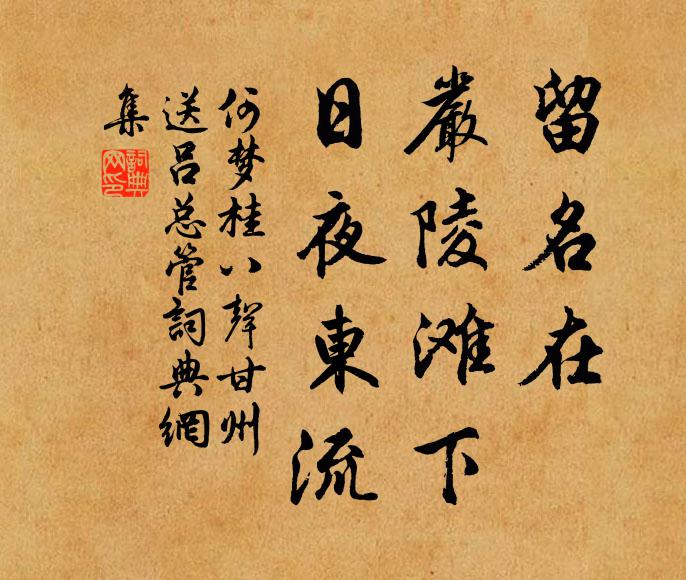 留名在
嚴陵滩下
日夜東流
何梦桂八聲甘州
送吕总管詞典網
集
詞典
网印